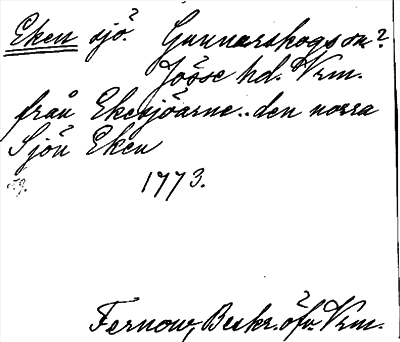 Eken sjö? Gunnarskogs sn?
Jösse hd. Vrm.
från Ekesjöarne.. den norra
Sjön Eken
1773.
Fernow, Beskr. öfv. Vrm.